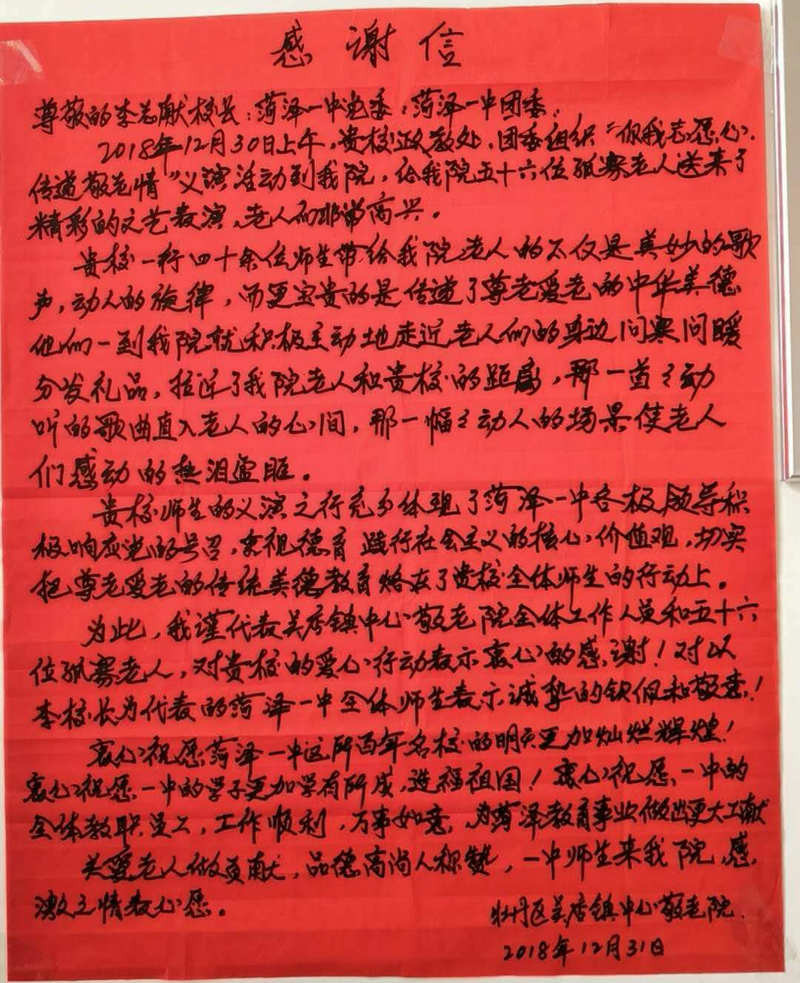 感谢信
尊敬的李志献校长:菏泽一中党委:菏泽一中团委:
2018年12月30日上午,贵校政教处,团委组织“你我志愿心,
传递敬老情”义演活动到我院,给我院五十六位孤寡老人送来了
精彩的文艺表演,老人们非常高兴。
贵校一行四十余位师生带给我院老人的不仅是美妙的歌
声,动人的旋律,而更宝贵的是传递了尊老爱老的中华美德
他们一到我院就积极主动地走近老人们的身边问寒问暖
分发礼品,拉近了我院老人和贵校的距离,那一首々动
听的歌曲直入老人的心间,那一幅々动人的场景使老人
们感动的热泪盈眶。
贵校师生的义演之行充分体现了菏泽一中各级领导积
极响应党的号召,重视德育践行社会主义的核心价值观,切实
把尊老爱老的传统美德教育烙在了贵校全体师生的行动上。
为此,我谨代表吴店镇中心敬老院全体工作人员和五十六
位孤寡老人,对贵校的爱心行动表示衷心的感谢!对以
李校长为代表的菏泽一中全体师生表示诚挚的钦佩和敬意!
衷心祝愿菏泽一中这所百年名校的明天更加灿烂辉煌!
衷心祝愿一中的学子更加学有所成,造福祖国!衷心祝愿一中的
全体教职员工,工作顺利,万事如意,为菏泽教育事业做出更大贡献
关爱老人做贡献,品德高尚人称赞,一中师生来我院,感
激之情表心愿。
牡丹区吴店镇中心敬老院
2018年12月31日